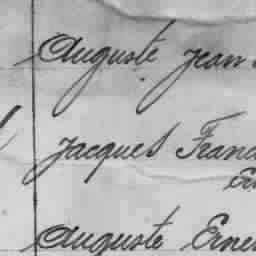 Auguste Jean
Jacques Franc
Er
Auguste Erne